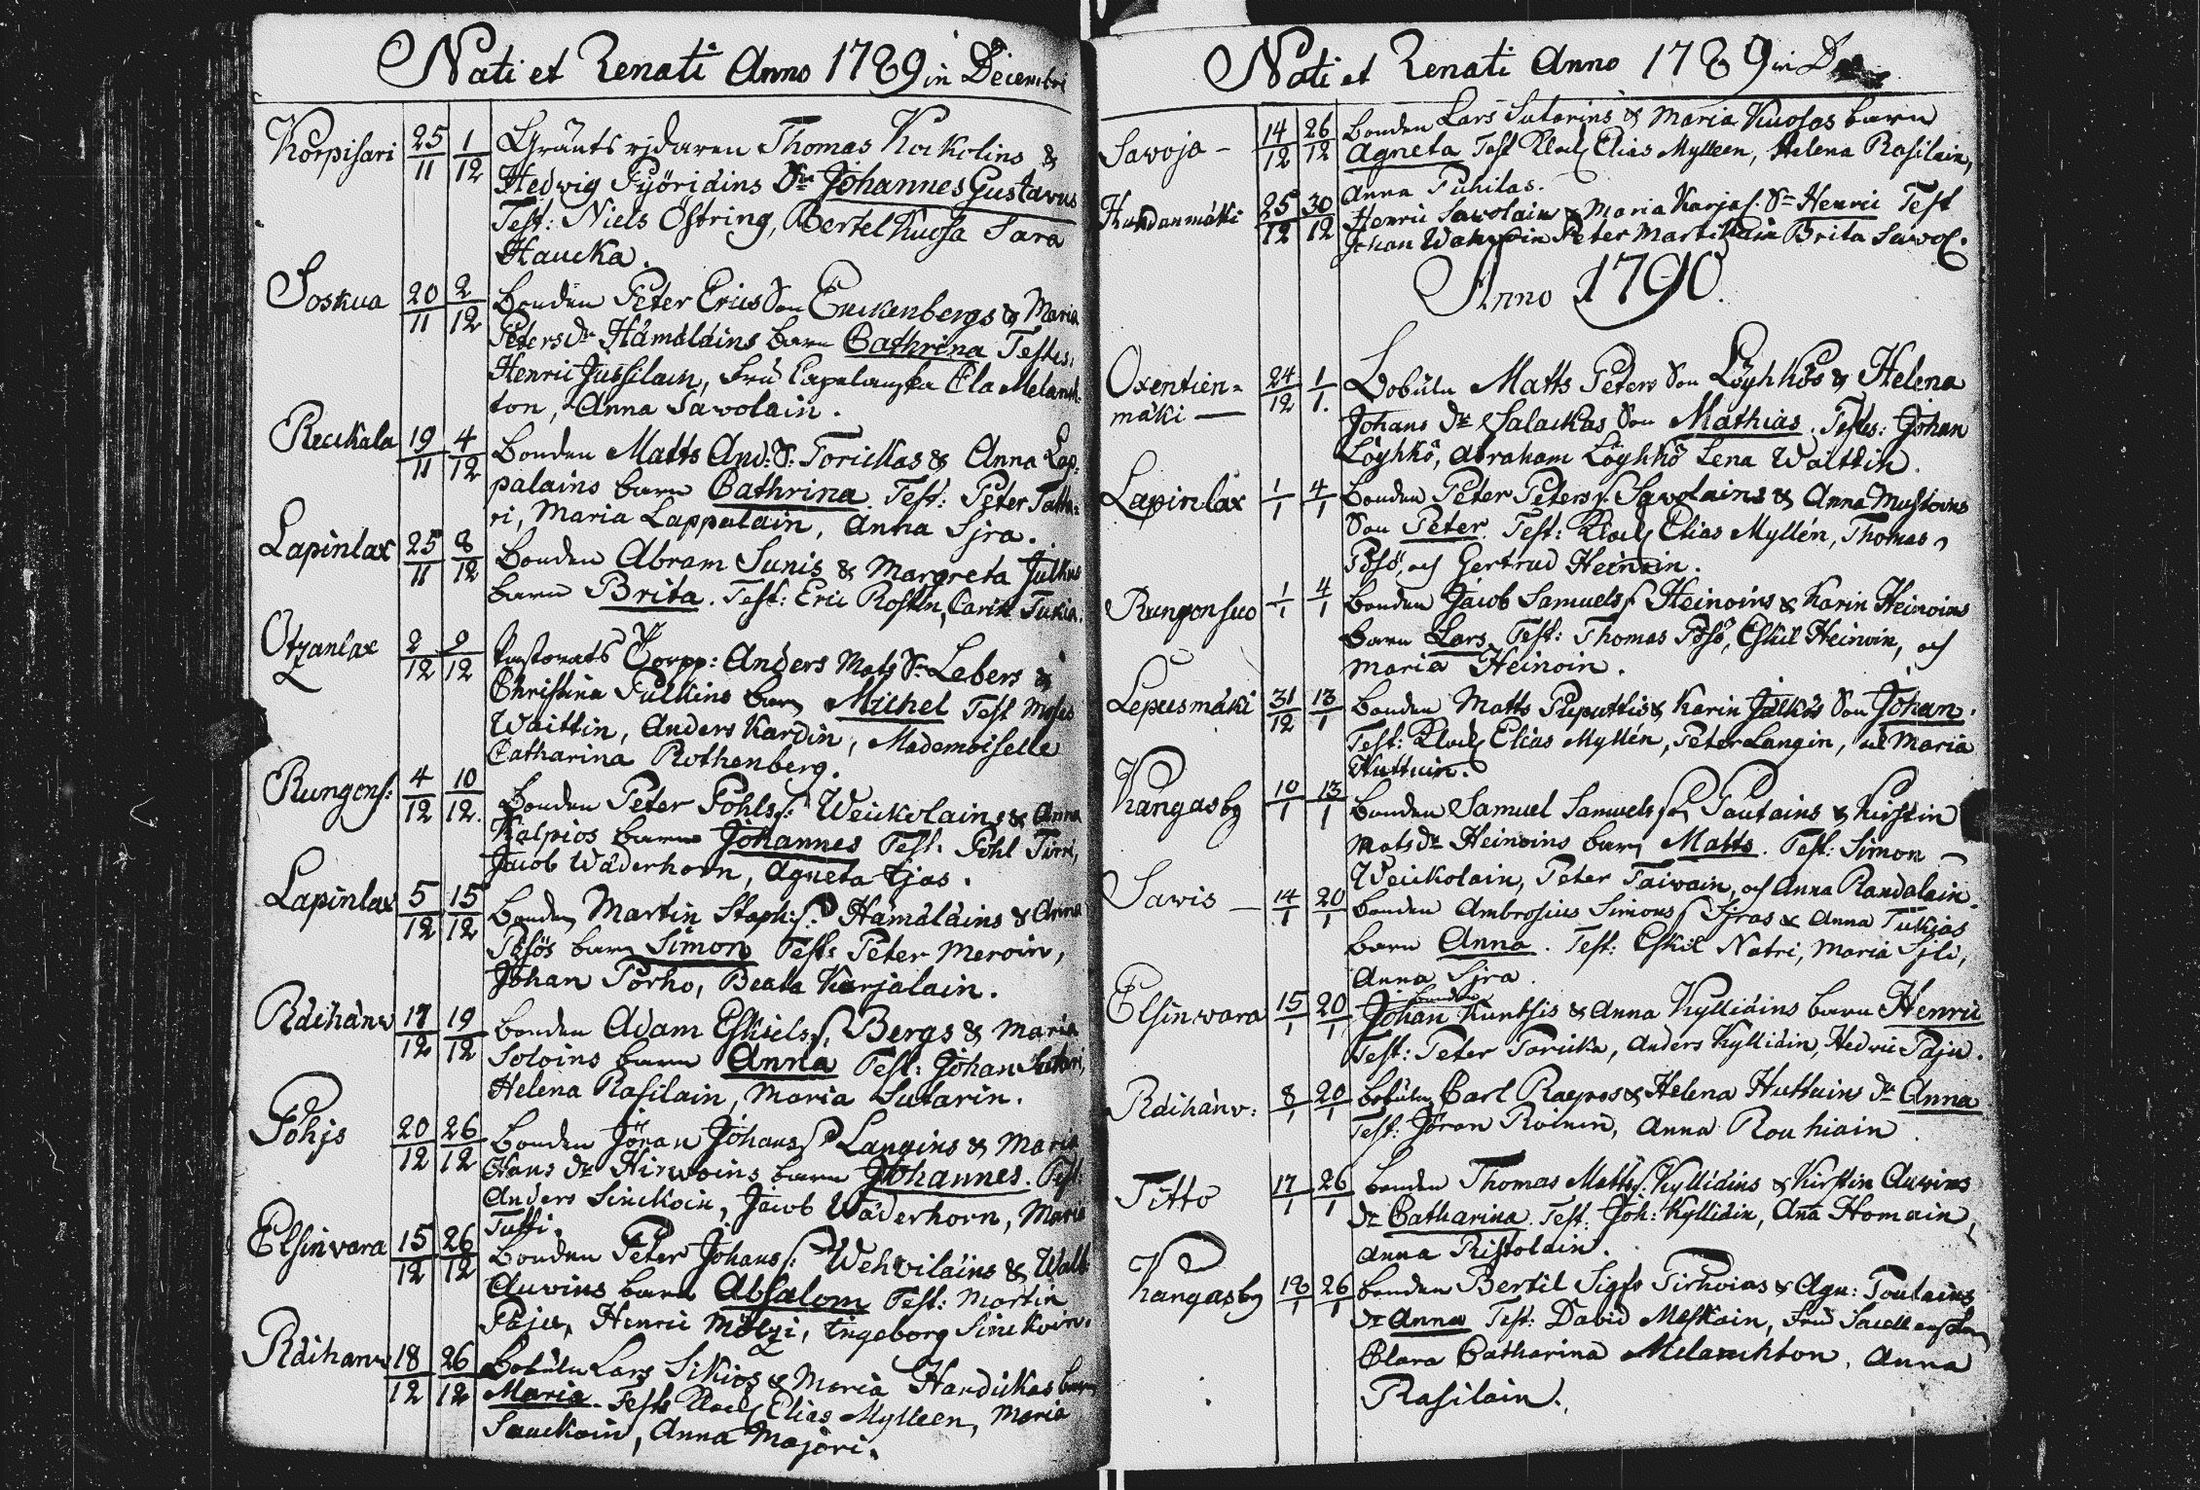 Nati et Renati Anno 1789 in Decembri
Korpisari 25/11 1/12 Gränts ridaren Thomas Kockolins &
Hedwig Pyöriäins Sn Johannes Gustavus
Test: Niels Östring, Bertel Kuosa Sara
Haucka.
Soskua 20/11 2/12 Bonden Peter Erics Son Enckenbergs & Maria
Petersdr Hämäläins barn Cathrina Testes,
Henric Jussilain, Fru Capelanska Ela Melanch-
ton, Anna Savolain.
Reuckala 19/11 4/12 Bonden Matts And: S: Torickas & Anna Lap-
palains barn Cathrina. Test: Peter Tatta-
ri, Maria Lappalain, Anna Sjra.
Lapinlax 25/11 8/12 Bonden Abram Sunis & Margreta Julkus
barn Brita. Test: Eric Rosten, Carin Tukia.
Otzanlax 2/12 9/12 Pastorats Torpp: Anders Mats Sn Lebers &
Christina Pulkins barn Michel Test Moses
Waittin, Anders Kardin, Mademoiselle
Catharina Rothenberg.
Rungons: 4/12 10/12 Bonden Peter Pohlss: Weickolains & Anna
Kalpios barn Johannes Test. Pohl Tirri,
Jacob Wäderhorn, Agneta Ejas.
Lapinlax 5/12 15/12 Bonden Martin Staph:s: Hämäläins & Anna
Pösös barn Simon Test: Peter Meroin,
Johan Porho, Beata Karjalain.
Räihänw 17/12 19/12 Bonden Adam Eskiels s. Bergs & Maria
Soloins barn Anna Test: Johan Sutari,
Helena Rasilain, Maria Sutarin.
Pohjs 20/12 26/12 Bonden Jöran Johans s Langins & Maria
Hans dr Hirwoins barn Johannes. Test:
Anders Sinckoin, Jacob Wäderhorn, Maria
Tussi.
Elsinvara 15/12 26/12 Bonden Peter Johans s: Wehviläins & Walb:
Auvins barn Absalom Test: Martin
Paju, Henric Mölzi, Ingeborg Sinckoin.
Räihänw 18/12 26/12 Lars Sikiös & Maria Handickas barn
Maria. Test: Klock Elias Mylleen, Maria
Sauckoin, Anna Majori.
Nati et Renati Anno 1789 in
Savoja - 14/12 26/12 Bonden Lars Sutarins & Maria Kuosas barn
Agneta Test Klock Elias Mylleen, Helena Rasilain,
Anna Puhilas.
Hurdanmäki 25/12 30/12 Henric Savolains & Maria Karjas. Sn Henric Test
Johan Peter Martikain Brita Savol.
Anno 1790.
Oxentien- 24/12 1/1. Matts Peters Son Löyhkös & Helena
mäki — Johans dr Salackas Son Mathias. Testes: Johan
Löyhkö, Abraham Löyhkö Lena Waittin.
Lapinlax 1/1 4/1 Bonden Peter Peters s. Savolains & Anna Mustoins
Son Peter. Test: Klock Elias Myllén, Thomas
Pösö, och Gertrud Heinoin.
Rungonsuo 1/1 4/1 Bonden Jacob Samuels s Heinoins & Karin Heinoins
barn Lars. Test: Thomas Pösö, Eskil Heinoin, och
Maria Heinoin.
Lepusmäki 31/12 13/1 Bonden Matts Puputtis & Karin Jälkös Son Johan.
Test: Klock Elias Myllén, Peter Langin, och Maria
Huttuin.
Kangasby 10/1 13/1 Bonden Samuel Samuels s. Pautains & Kirstin
Mats dr Heinoins barn Matts. Test: Simon
Weickolain, Peter Taiwain, och Anna Randalain.
Savis — 14/1 20/1 Bonden Ambrosius Simons s Sjras & Anna Tukias
barn Anna. Test: Eskil Natri, Maria Sjli,
Anna Sjra.
Elsinvara 15/1 20/1 bonden Johan Kuntsis & Anna Kylliäins barn Henric
Test: Peter Toricka, Anders Kylliäin, Hedvic Paju.
Räihänv: 8/1 20/1 Carl Raepos & Helena Huttuins dr Anna
Test: Jöran Roinin, Anna Rouhiain.
Titto 17/1 26/1 Bonden Thomas Matts s. Kylliäins & Kirstin Auvins
dr Catharina. Test. Joh: Kylliäin, Anna Homain,
Anna Ristolain.
Kangasby 18/1 26/1 Bonden Bertil Sigfs Pirhoias & Agn: Poutains
dr Anna Test: David Meskain, Fru
Clara Catharina Melanchton, Anna
Rasilain.